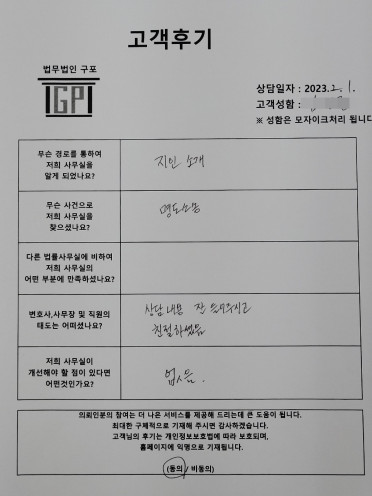 고객후기
법무법인 구포
IGPI
상담일자 : 2023. 2. 1.
고객성함 :
※ 성함은 모자이크처리 됩니다
무슨 경로를 통하여
저희 사무실을
알게 되었나요?
지인 소개
무슨 사건으로
저희 사무실을
찾으셨나요?
명도소송
다른 법률사무실에 비하여
저희 사무실의
어떤 부분에 만족하셨나요?
변호사,사무장 및 직원의
태도는 어떠셨나요?
상담내용 잘 들어주시고
친절하셨음
저희 사무실이
개선해야 할 점이 있다면
어떤것인가요?
없음.
의뢰인분의 참여는 더 나은 서비스를 제공해 드리는데 큰 도움이 됩니다.
최대한 구체적으로 기재해 주시면 감사하겠습니다.
고객님의 후기는 개인정보보호법에 따라 보호되며,
홈페이지에 익명으로 기재됩니다.
(동의 / 비동의)